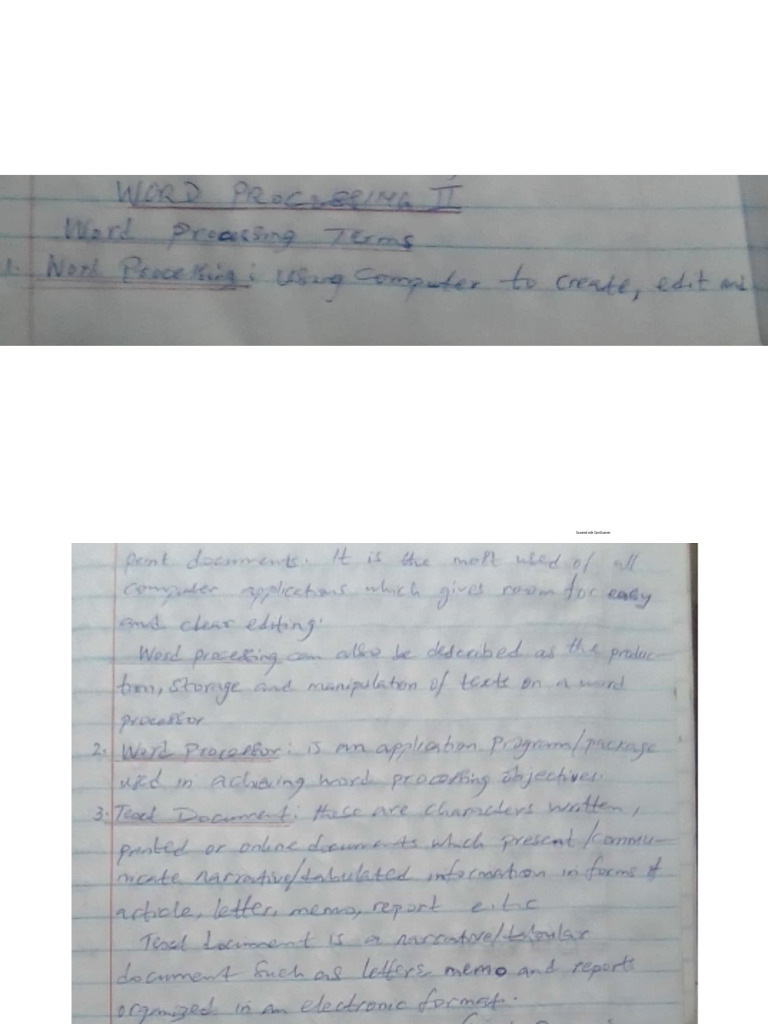 WORD PROCESSING II
Word Processing Terms
1. Word Processing: Using Computer to create, edit and
Scanned with CamScanner
print documents. It is the most used of all
computer applications which gives room for easy
and clear editing.
Word processing can also be described as the produc-
tion, storage and manipulation of texts on a word
processor
2. Word Processor: is an application Program/package
used in achieving word processing objectives.
3. Text Document: these are characters written,
printed or online documents which present/commu-
nicate narrative/tabulated information in forms of
article, letter, memo, report e.t.c
Text document is a narrative/tabular
document such as letters, memo and reports
organized in an electronic format.